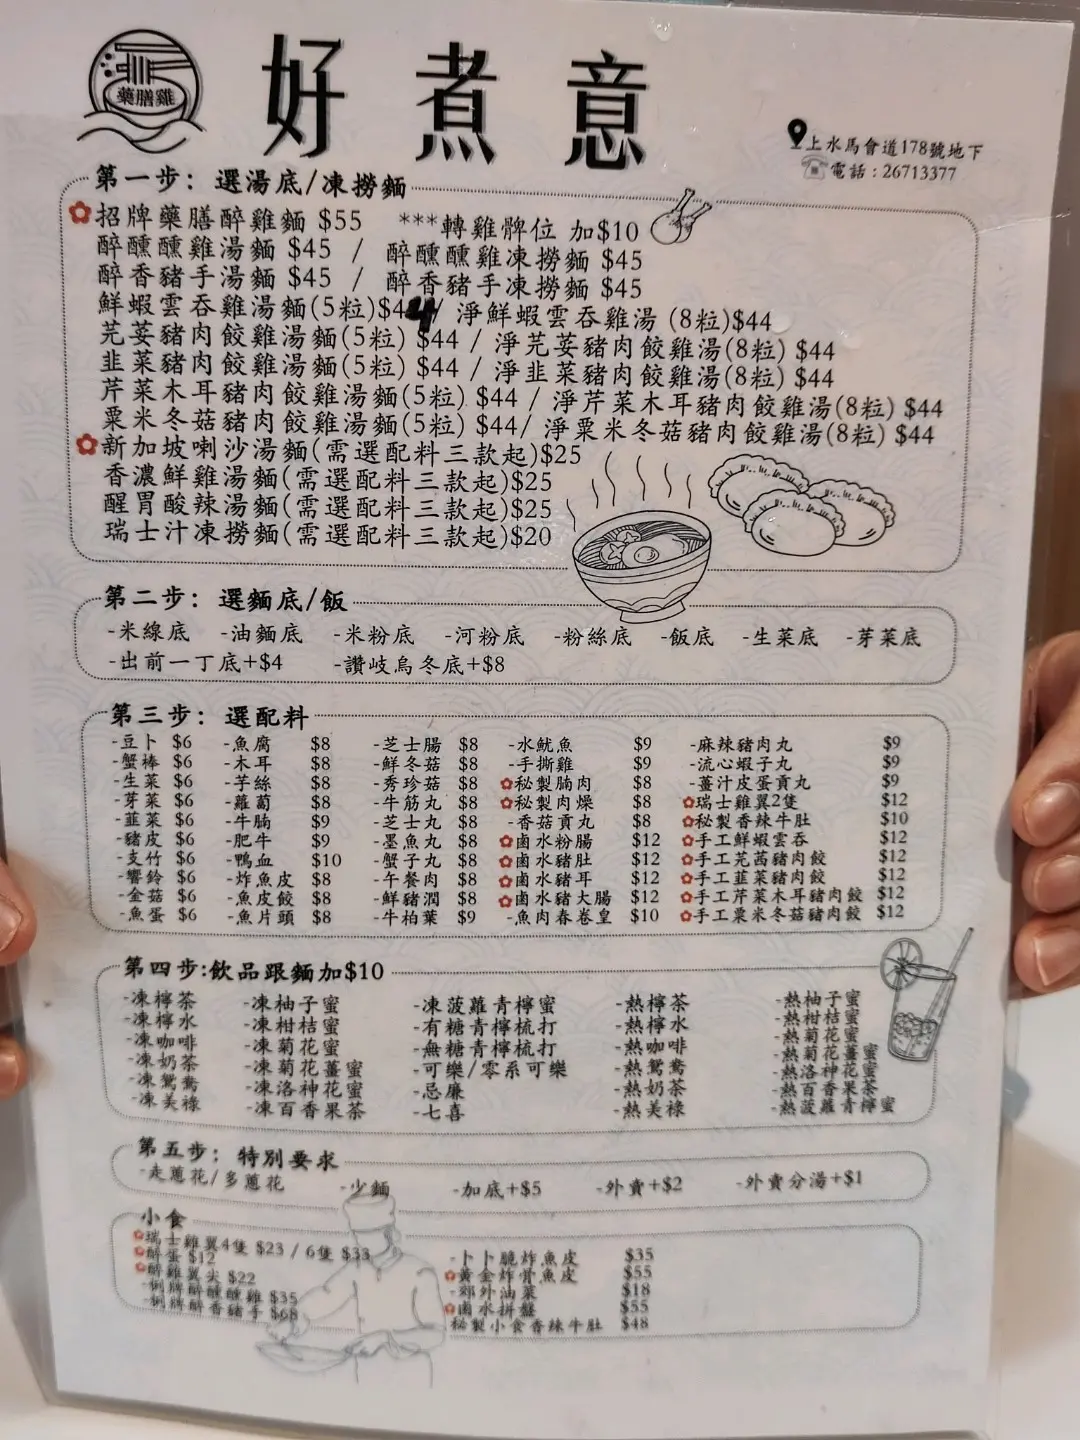 藥膳雞
好煮意
上水馬會道178號地下
電話：26713377
第一步：選湯底/凍撈麵
招牌藥膳醉雞麵 $55 ***轉雞髀位 加$10
醉醺醺雞湯麵 $45 / 醉醺醺雞凍撈麵 $45
醉香豬手湯麵 $45 / 醉香豬手凍撈麵 $45
鮮蝦雲吞雞湯麵(5粒)$44/ 淨鮮蝦雲吞雞湯 (8粒)$44
芫荽豬肉餃雞湯麵(5粒) $44 / 淨芫荽豬肉餃雞湯(8粒) $44
韭菜豬肉餃雞湯麵(5粒) $44 / 淨韭菜豬肉餃雞湯(8粒) $44
芹菜木耳豬肉餃雞湯麵(5粒) $44 / 淨芹菜木耳豬肉餃雞湯(8粒) $44
粟米冬菇豬肉餃雞湯麵(5粒) $44/ 淨粟米冬菇豬肉餃雞湯(8粒) $44
新加坡喇沙湯麵(需選配料三款起)$25
香濃鮮雞湯麵(需選配料三款起)$25
醒胃酸辣湯麵(需選配料三款起)$25
瑞士汁凍撈麵(需選配料三款起)$20
第二步：選麵底/飯
-米線底 -油麵底 -米粉底 -河粉底 -粉絲底 -飯底 -生菜底 -芽菜底
-出前一丁底+$4 -讚岐烏冬底+$8
第三步：選配料
-豆卜 $6 -魚腐 $8 -芝士腸 $8 -水魷魚 $9 -麻辣豬肉丸 $9
-蟹棒 $6 -木耳 $8 -鮮冬菇 $8 -手撕雞 $9 -流心蝦子丸 $9
-生菜 $6 -芋絲 $8 -秀珍菇 $8 秘製腩肉 $8 -薑汁皮蛋貢丸 $9
-芽菜 $6 -蘿蔔 $8 -牛筋丸 $8 秘製肉燥 $8 瑞士雞翼2隻 $12
-韮菜 $6 -牛腩 $9 -芝士丸 $8 -香菇貢丸 $8 秘製香辣牛肚 $10
-豬皮 $6 -肥牛 $9 -墨魚丸 $8 鹵水粉腸 $12 手工鮮蝦雲吞 $12
-支竹 $6 -鴨血 $10 -蟹子丸 $8 鹵水豬肚 $12 手工芫茜豬肉餃 $12
-響鈴 $6 -炸魚皮 $8 -午餐肉 $8 鹵水豬耳 $12 手工韮菜豬肉餃 $12
-金菇 $6 -魚皮餃 $8 -鮮豬潤 $8 鹵水豬大腸 $12 手工芹菜木耳豬肉餃 $12
-魚蛋 $6 -魚片頭 $8 -牛柏葉 $9 -魚肉春卷皇 $10 手工粟米冬菇豬肉餃 $12
第四步:飲品跟麵加$10
-凍檸茶 -凍柚子蜜 -凍菠蘿青檸蜜 -熱檸茶 -熱柚子蜜
-凍檸水 -凍柑桔蜜 -有糖青檸梳打 -熱檸水 -熱柑桔蜜
-凍咖啡 -凍菊花蜜 -無糖青檸梳打 -熱咖啡 -熱菊花蜜
-凍奶茶 -凍菊花薑蜜 -可樂/零系可樂 -熱鴛鴦 -熱菊花薑蜜
-凍鴛鴦 -凍洛神花蜜 -忌廉 -熱奶茶 -熱洛神花蜜
-凍美祿 -凍百香果茶 -七喜 -熱美祿 -熱百香果茶
-熱菠蘿青檸蜜
第五步：特別要求
-走蔥花/多蔥花 -少麵 -加底+$5 -外賣+$2 -外賣分湯+$1
小食
瑞士雞翼4隻 $23 / 6隻 $33 -卜卜脆炸魚皮 $35
醉蛋 $12 黃金炸骨魚皮 $55
醉雞翼尖 $22 -郊外油菜 $18
-例牌醉醺醺雞 $35 鹵水拼盤 $55
-例牌醉香豬手 $68 秘製小食香辣牛肚 $48